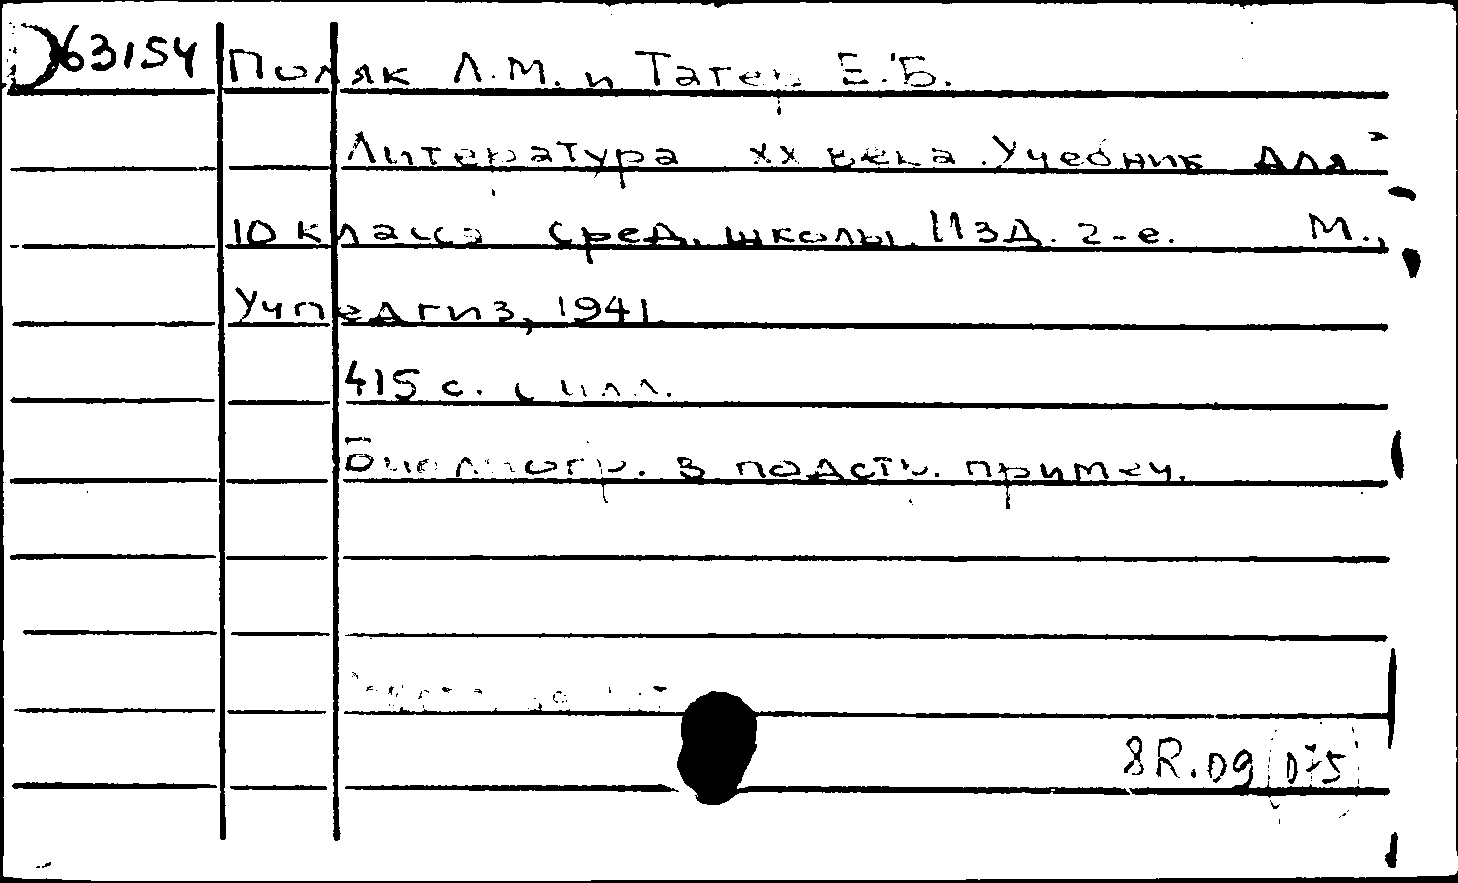 D63154 Поляк Л.М. и Тагер Е.Б.
Литература XX века. Учебник для
10 класса сред. школы. Изд. 2-е. М.,
Учпедгиз, 1941.
415 с. с илл.
Библиогр. в подстр. примеч.
8R.09